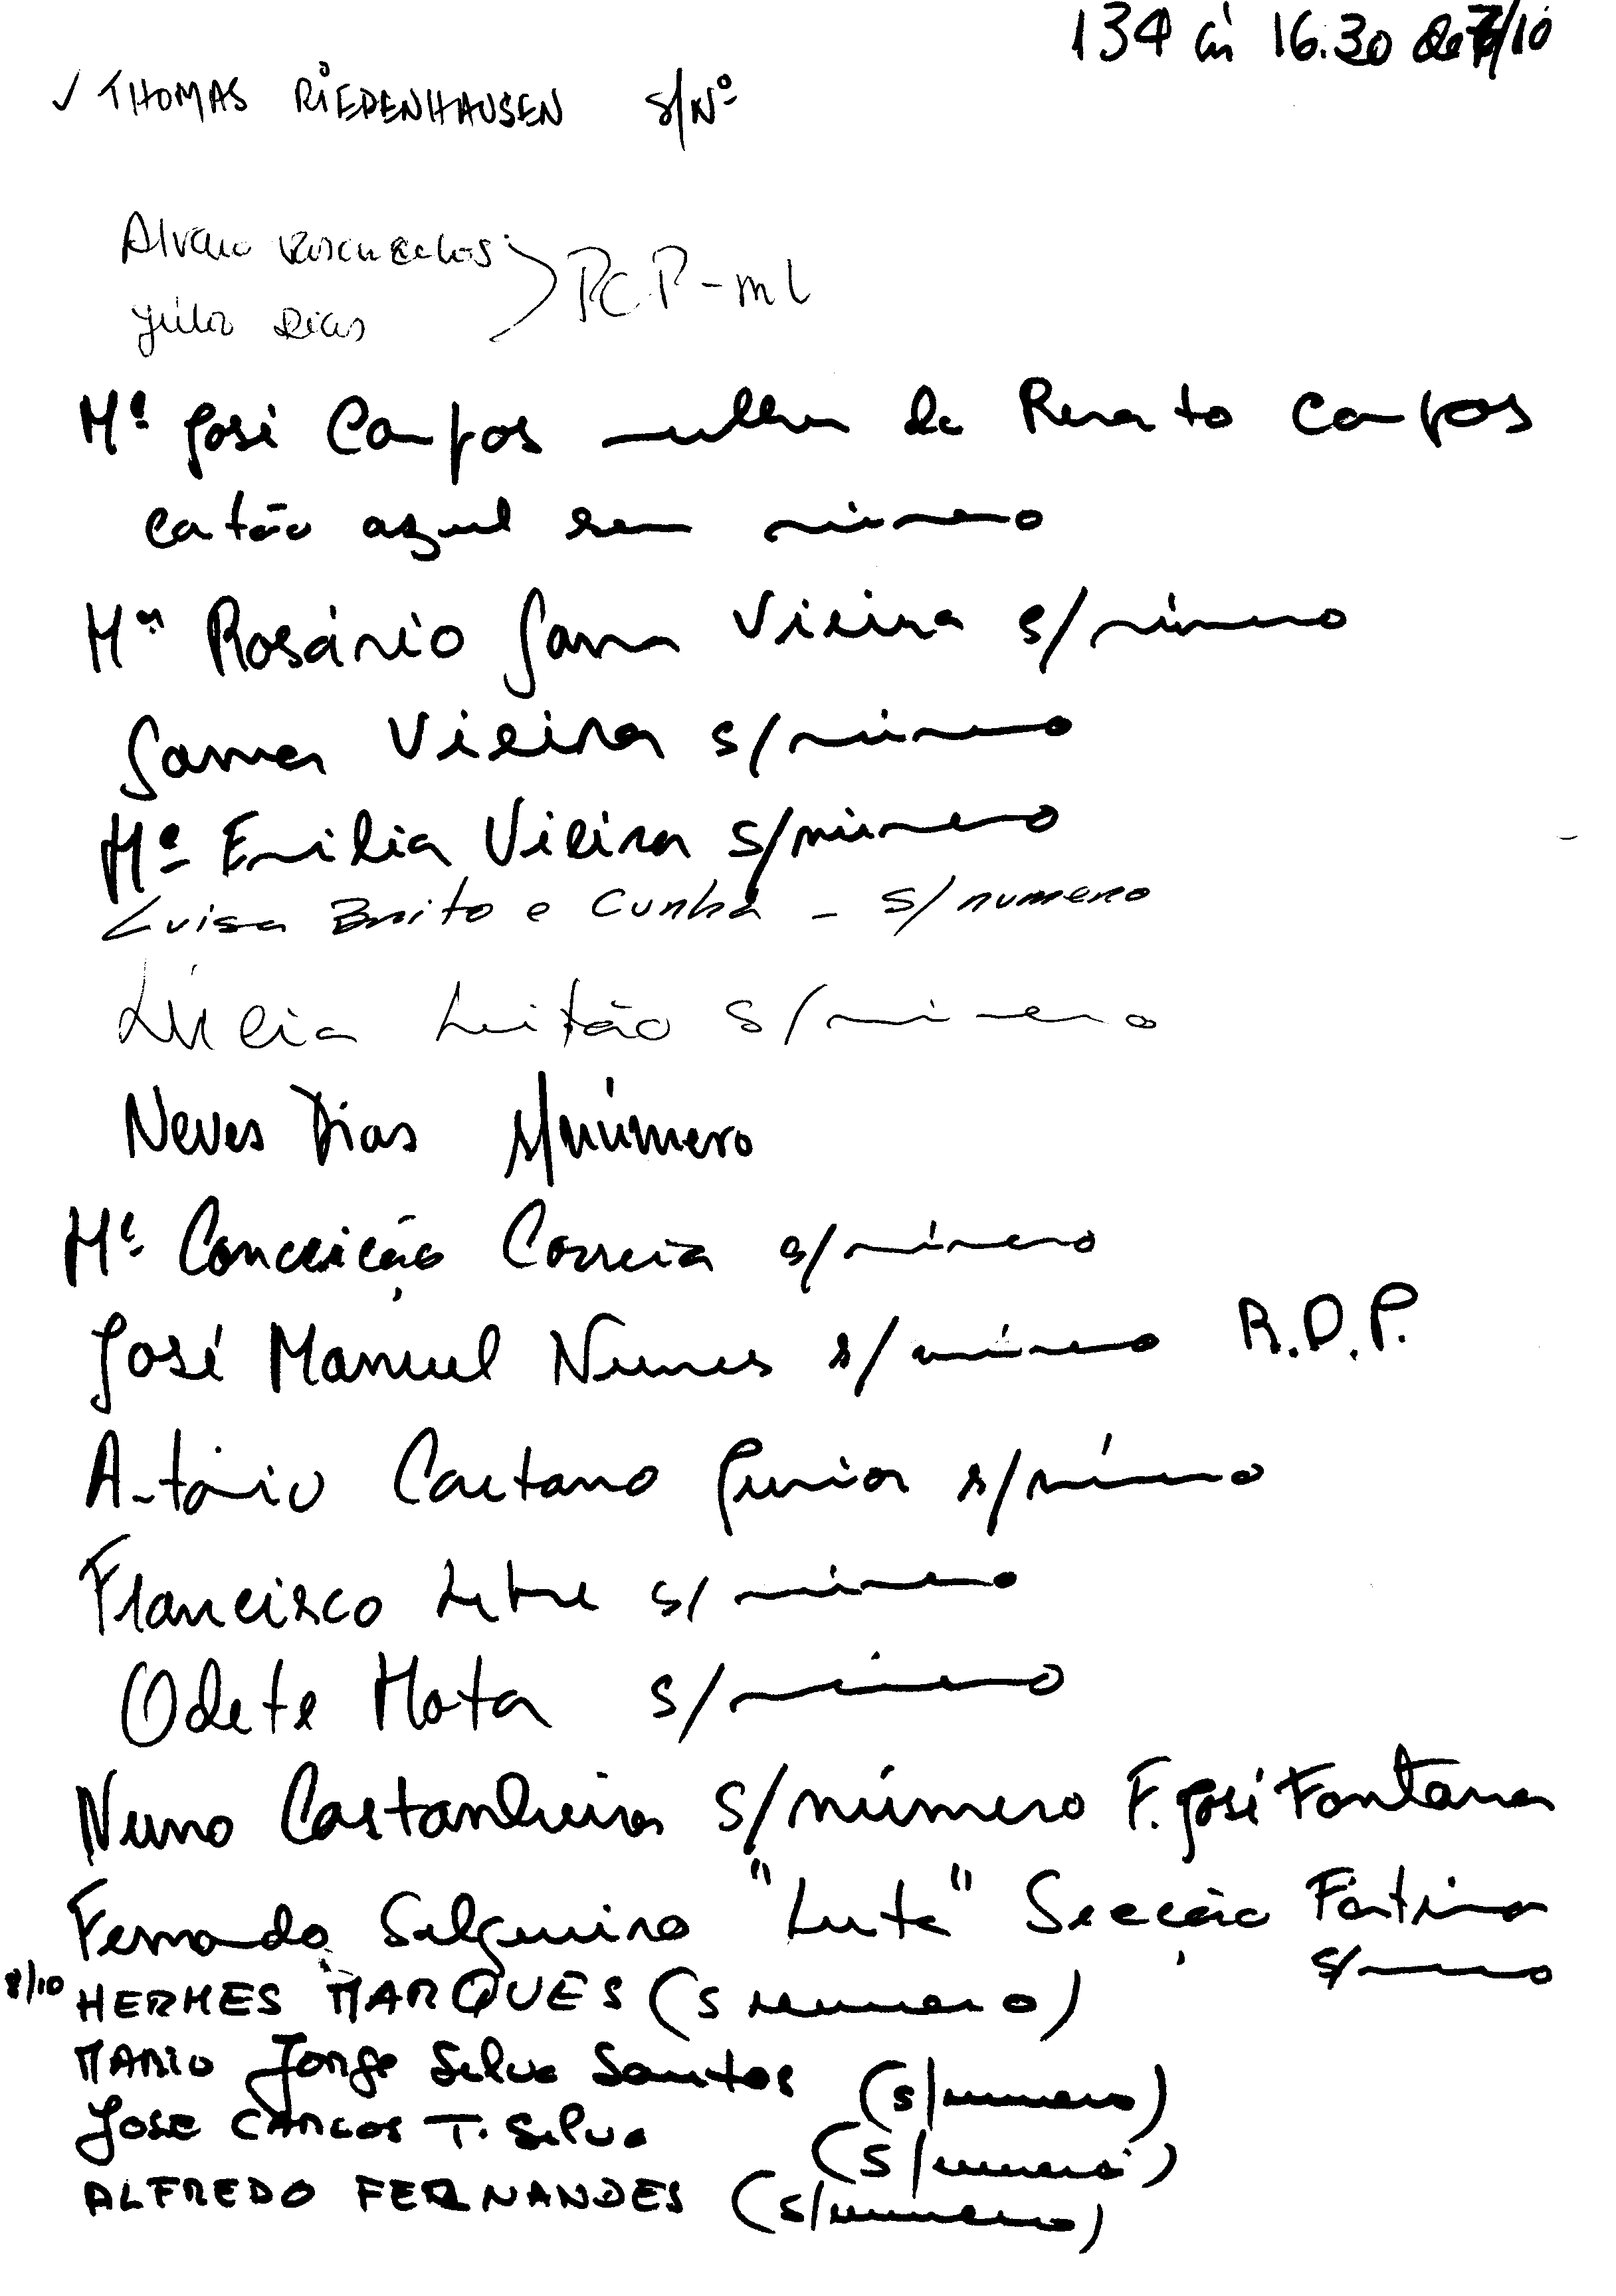 134 às 16.30 de 7/10
✓ THOMAS RIEDENHAUSEN S/Nº
Alvaro Vasconcelos
PCP-ml
Júlia Dias
Mª José Campos mulher de Renato Campos
catão azul sem número
Mª Rosário Gama Vieira s/número
Gama Vieira s/número
Mª Emilia Vieira s/número
Luisa Brito e Cunha - s/numero
Leitão s/número
Neves Dias s/número
Mª Conceição Correia s/número
José Manuel Nunes s/número R.D.P.
António Caetano Junior s/número
Francisco Lebre s/número
Odete Mota s/número
Nuno Castanheira s/número F. José Fontana
Fernando Salgueiro "Luta" Secção Fátima
s/numero
8/10 HERMES MARQUES (s numero)
MARIO Jorge Silva Santos (s/numero)
JOSE CARLOS T. Silva (s/numero)
ALFREDO FERNANDES (s/numero)